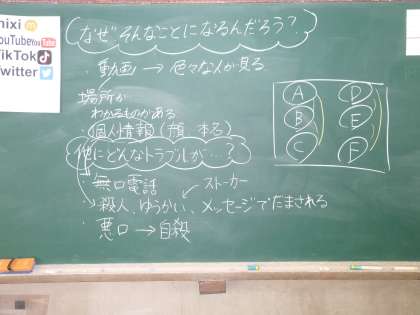 mixi
YouTube YouTube
TikTok
Twitter
なぜそんなことになるんだろう?
・動画→色々な人が見る
場所が
わかるものがある
・個人情報(顔 本名)
他にどんなトラブルが…?
・無口電話 ストーカー
→殺人、ゆうかい、メッセージでだまされる
・悪口→自殺
A D
B E
C F